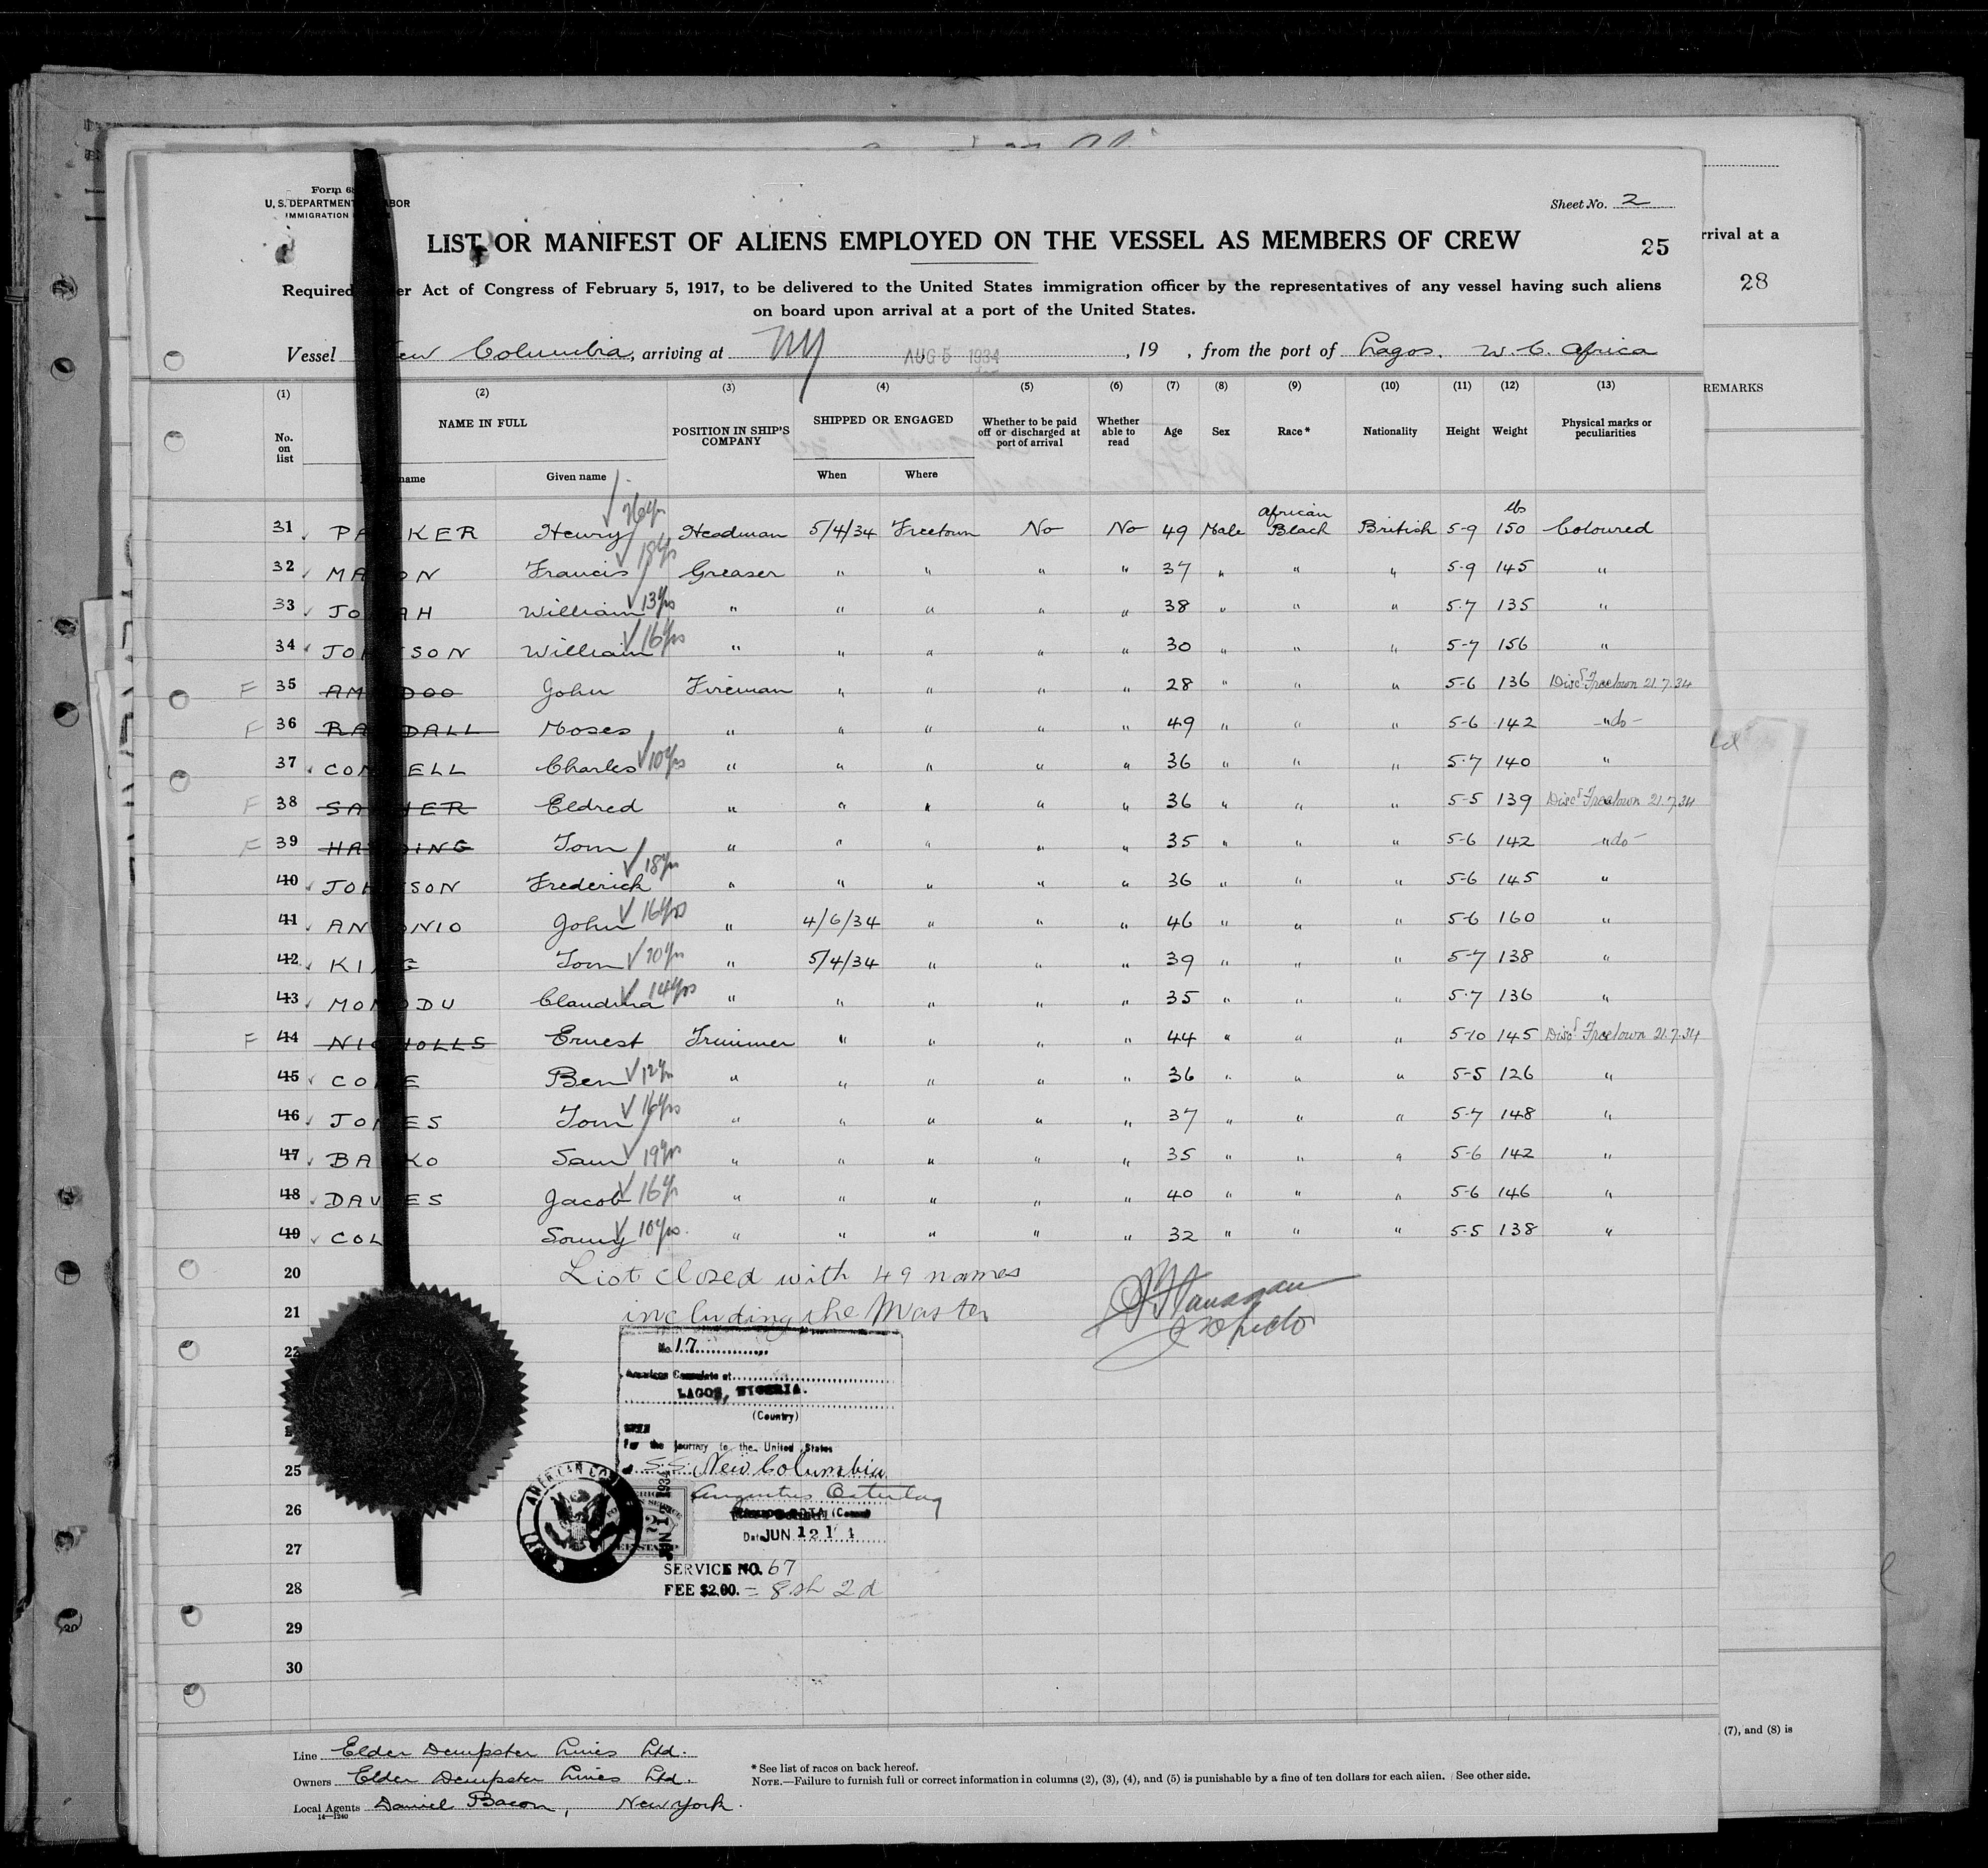 Form 68
U. S. DEPARTMENT ABOR
IMMIGRATION
Sheet No. 2
LIST OR MANIFEST OF ALIENS EMPLOYED ON THE VESSEL AS MEMBERS OF CREW
25
rrival at a
28
Required er Act of Congress of February 5, 1917, to be delivered to the United States immigration officer by the representatives of any vessel having such aliens
on board upon arrival at a port of the United States.
Vessel ew Columbia, arriving at NY AUG 5 1934, 19 , from the port of Lagos. W. C. Africa
(1) (2) (3) (4) (5) (6) (7) (8) (9) (10) (11) (12) (13)
REMARKS
No. on list NAME IN FULL POSITION IN SHIP'S COMPANY SHIPPED OR ENGAGED Whether to be paid off or discharged at port of arrival Whether able to read Age Sex Race* Nationality Height Weight Physical marks or peculiarities
name Given name When Where
31 PA KER Henry 26yr Headman 5/4/34 Freetown No No 49 Male African Black British 5-9 150 lb Coloured
32 MA ON Francis 18yrs Greaser " " " " 37 " " " 5-9 145 "
33 JO AH William 13yrs " " " " " 38 " " " 5-7 135 "
34 JO SON William 16yrs " " " " " 30 " " " 5-7 156 "
F 35 AM DOO John Fireman " " " " 28 " " " 5-6 136 Discd Freetown 21.7.34
F 36 RA DALL Moses " " " " " 49 " " " 5-6 142 -"do-
37 CO ELL Charles 10yrs " " " " " 36 " " " 5-7 140 "
F 38 SA ER Eldred " " " " " 36 " " " 5-5 139 Discd Freetown 21.7.34
F 39 HA ING Tom " " " " " 35 " " " 5-6 142 -"do-
40 JO SON Frederick 18yrs " " " " " 36 " " " 5-6 145 "
41 AN ONIO John 16yrs " 4/6/34 " " " 46 " " " 5-6 160 "
42 KI G Tom 20yrs " 5/4/34 " " " 39 " " " 5-7 138 "
43 MO ODU Claudina 14yrs " " " " " 35 " " " 5-7 136 "
F 44 NI HOLLS Ernest Trimmer " " " " 44 " " " 5-10 145 Discd Freetown 21.7.34
45 CO E Ben 12yrs " " " " " 36 " " " 5-5 126 "
46 JO ES Tom 16yrs " " " " " 37 " " " 5-7 148 "
47 BA KO Sam 19yrs " " " " " 35 " " " 5-6 142 "
48 DAV ES Jacob 16yr " " " " " 40 " " " 5-6 146 "
49 COL Sonny 10yrs. " " " " " 32 " " " 5-5 138 "
20 List closed with 49 names
21 including the Master
Inspector
22
No. 17
American Consulate at
LAGOS, NIGERIA.
(Country)
SEEN
For the journey to the United States
25 S.S. New Columbia
26
(Consul)
27 Date JUN 12 1 4
SERVICE NO. 67
28 FEE $2.00. = 8 sh 2 d
29
30
(7), and (8) is
Line Elder Dempster Lines Ltd.
* See list of races on back hereof.
Owners Elder Dempster Lines Ltd.
NOTE.—Failure to furnish full or correct information in columns (2), (3), (4), and (5) is punishable by a fine of ten dollars for each alien. See other side.
Local Agents Daniel Bacon, New York.
14—1240